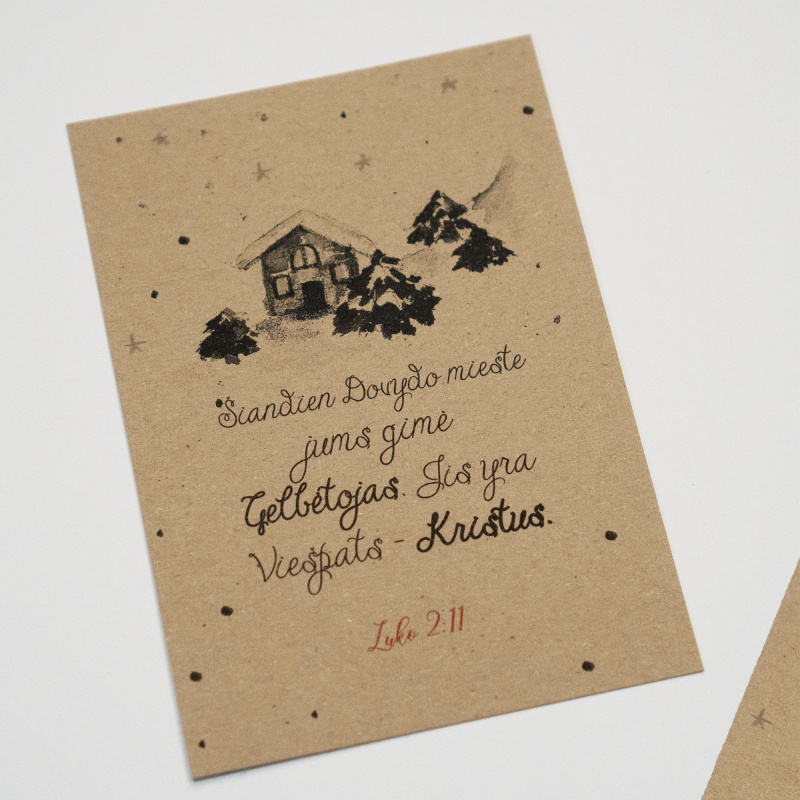 Šiandien Dovydo mieste
jums gimė
Gelbėtojas. Jis yra
Viešpats - Kristus.
Luko 2:11